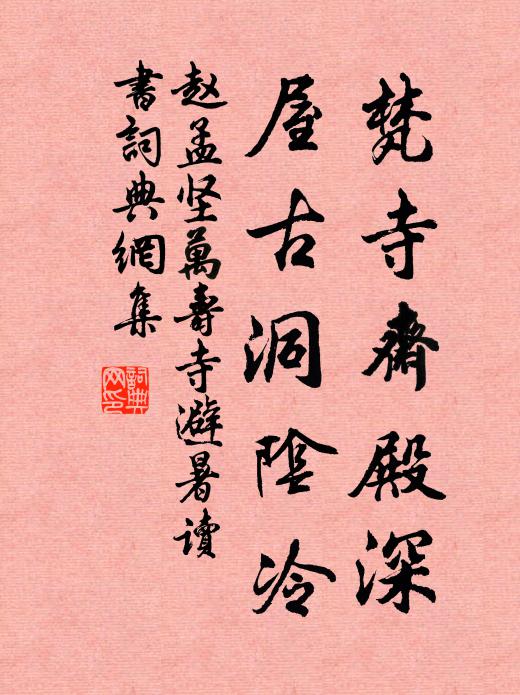 梵寺齋殿深
屋古洞陰冷
赵孟坚萬壽寺避暑读
書詞典網集
詞典网印